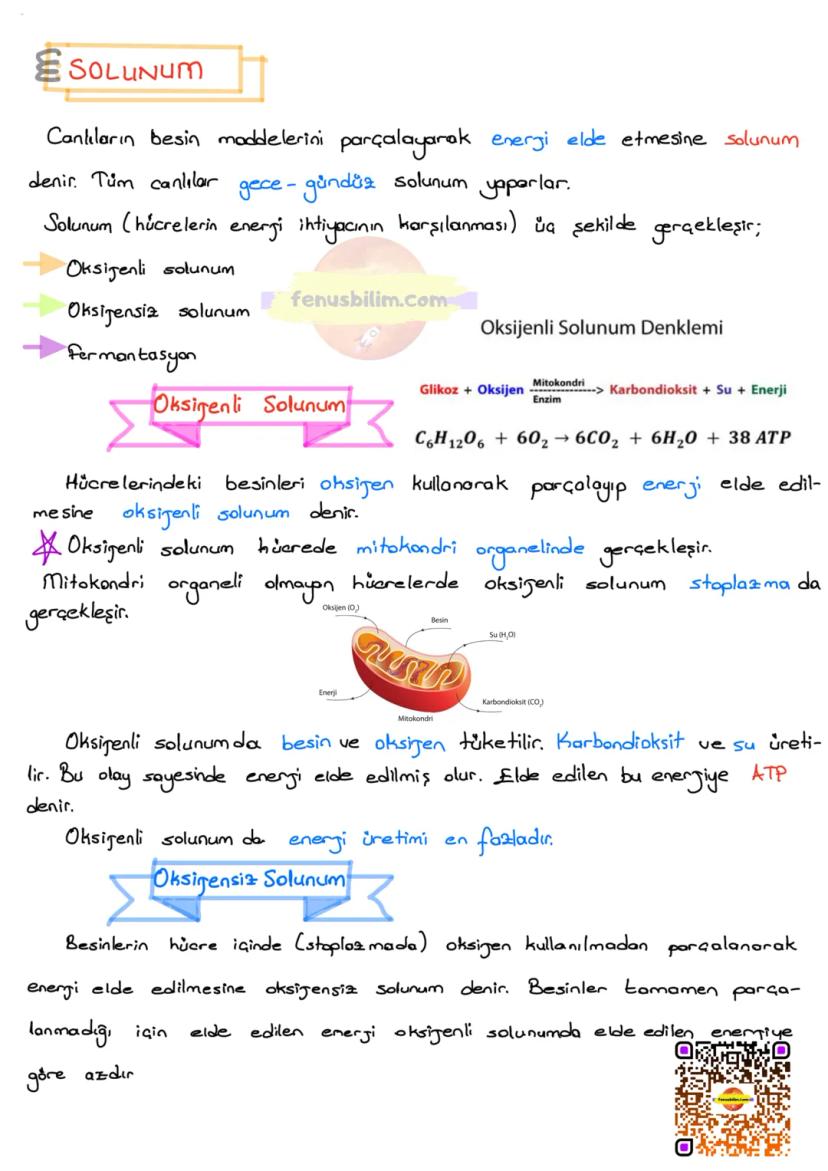 SOLUNUM
Canlıların besin maddelerini parçalayarak enerji elde etmesine solunum
denir. Tüm canlılar gece-gündüz solunum yaparlar.
Solunum (hücrelerin enerji ihtiyacının karşılanması) üç şekilde gerçekleşir;
Oksijenli solunum
Oksijensiz solunum
fenusbilim.com
Fermantasyon
Oksijenli Solunum Denklemi
Glikoz + Oksijen Mitokondri Enzim ----------> Karbondioksit + Su + Enerji
C₆H₁₂O₆ + 6O₂ → 6CO₂ + 6H₂O + 38 ATP
Oksijenli Solunum
Hücrelerindeki besinleri oksijen kullanarak parçalayıp enerji elde edil-
mesine oksijenli solunum denir.
Oksijenli solunum hücrede mitokondri organelinde gerçekleşir.
Mitokondri organeli olmayan hücrelerde oksijenli solunum stoplazma da
gerçekleşir.
Oksijen (O₂)
Besin
Su (H₂O)
Enerji
Karbondioksit (CO₂)
Mitokondri
Oksijenli solunumda besin ve oksijen tüketilir. Karbondioksit ve su üreti-
lir. Bu olay sayesinde enerji elde edilmiş olur. Elde edilen bu enerjiye ATP
denir.
Oksijenli solunum da enerji üretimi en fazladır.
Oksijensiz Solunum
Besinlerin hücre içinde (stoplazmada) oksijen kullanılmadan parçalanarak
enerji elde edilmesine oksijensiz solunum denir. Besinler tamamen parça-
lanmadığı için elde edilen enerji oksijenli solunumda elde edilen enerjiye
göre azdır
fenusbilim.com